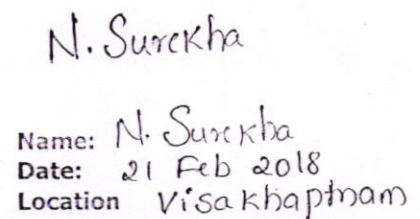 N. Surekha
Name: N. Surekha
Date: 21 Feb 2018
Location Visakhaptnam